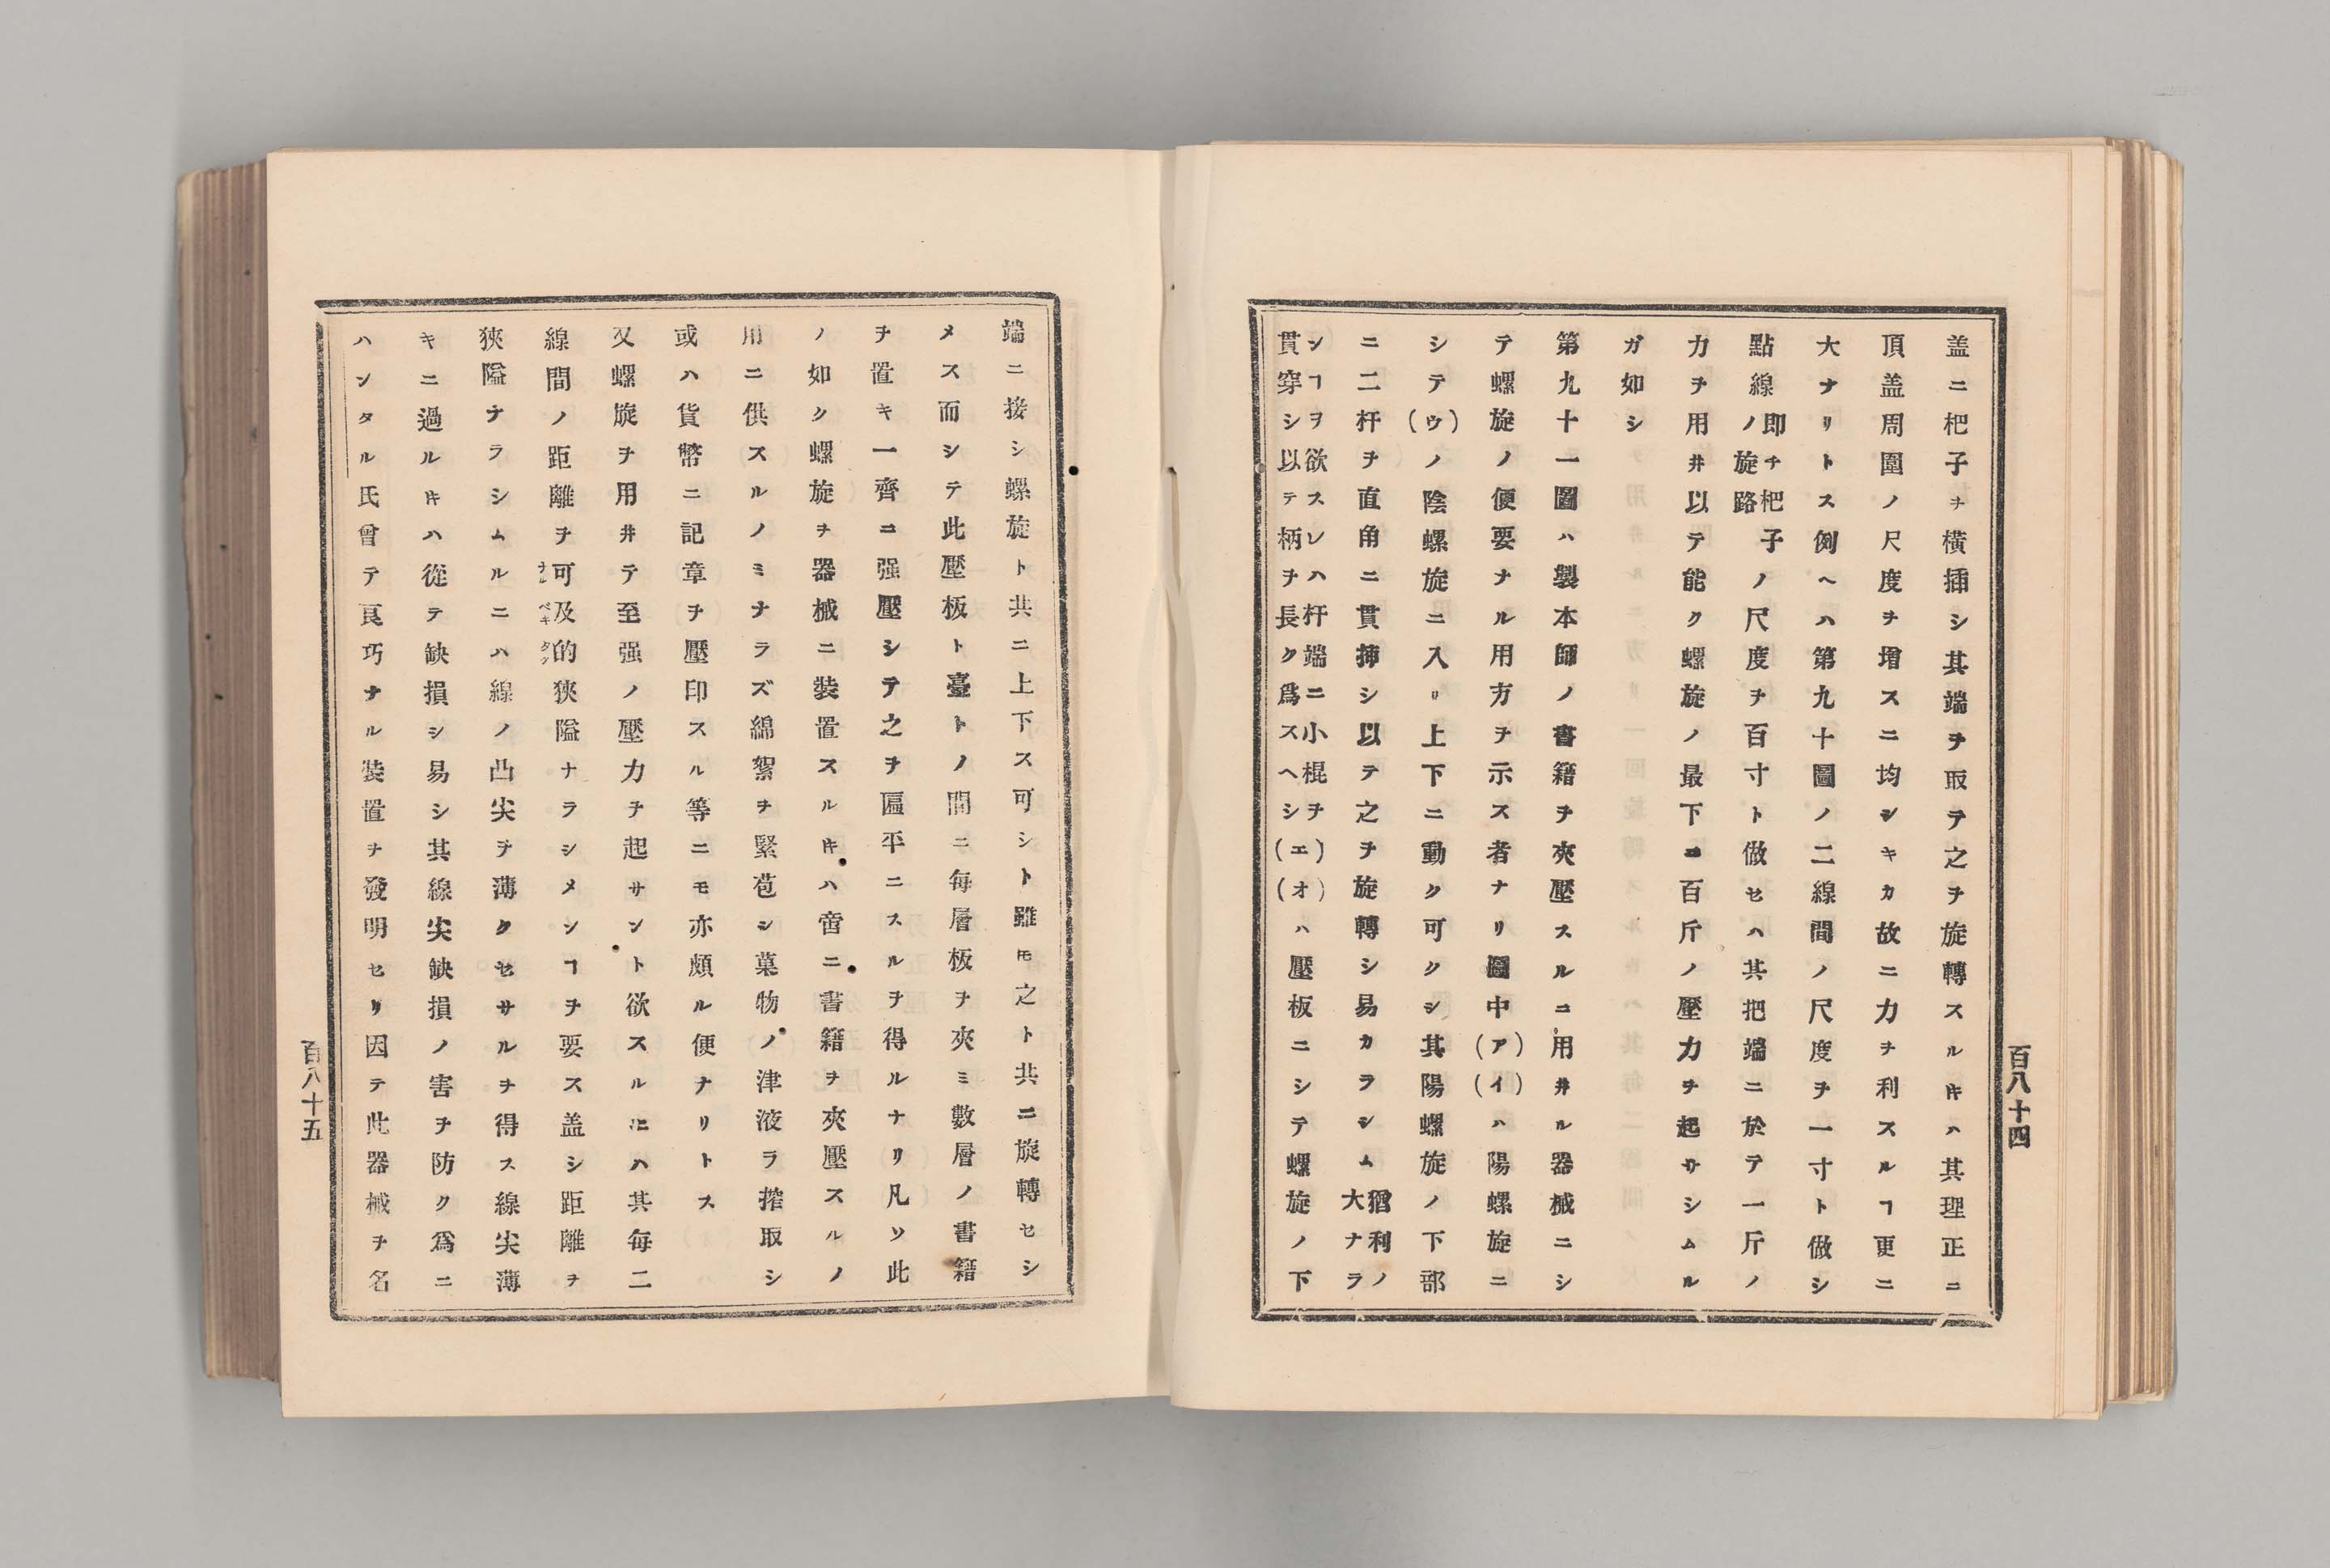 盖ニ杷子ヲ橫揷シ其端ヲ取テ之ヲ旋轉スルキハ其理正ニ
頂盖周圍ノ尺度ヲ增スニ均シキカ故ニ力ヲ利スルヿ更ニ
大ナリトス例ヘハ第九十圖ノ二線間ノ尺度ヲ一寸ト做シ
點線即チ杷子ノ旋路ノ尺度ヲ百寸ト做セハ其把端ニ於テ一斤ノ
力ヲ用井以テ能ク螺旋ノ最下ニ百斤ノ壓力ヲ起サシムル
ガ如シ
第九十一圖ハ製本師ノ書籍ヲ夾壓スルニ用井ル器械ニシ
テ螺旋ノ便要ナル用方ヲ示ス者ナリ圖中(ア)(イ)ハ陽螺旋ニ
シテ(ウ)ノ陰螺旋ニ入リ上下ニ動ク可クシ其陽螺旋ノ下部
ニ二杆ヲ直角ニ貫揷シ以テ之ヲ旋轉シ易カラシム猶利ノ大ナラ
シヿヲ欲スレハ杆端ニ小棍ヲ貫穿シ以テ柄ヲ長ク爲スヘシ(エ)(オ)ハ壓板ニシテ螺旋ノ下
百八十四
端ニ接シ螺旋ト共ニ上下ス可シト雖𪜈之ト共ニ旋轉セシ
メス而シテ此壓板ト臺トノ間ニ每層板ヲ夾ミ數層ノ書籍
ヲ置キ一齊ニ强壓シテ之ヲ匾平ニスルヲ得ルナリ凡ソ此
ノ如ク螺旋ヲ器械ニ裝置スルキハ啻ニ書籍ヲ夾壓スルノ
用ニ供スルノミナラズ綿絮ヲ緊苞シ菓物ノ津液ヲ搾取シ
或ハ貨幣ニ記章ヲ壓印スル等ニモ亦頗ル便ナリトス
又螺旋ヲ用井テ至强ノ壓力ヲ起サント欲スルニハ其每二
線間ノ距離ヲ可及的狹隘ナラシメンヿヲ要ス盖シ距離ヲ
狹隘ナラシムルニハ線ノ凸尖ヲ薄クセサルヲ得ス線尖薄
キニ過ルキハ從テ缺損シ易シ其線尖缺損ノ害ヲ防ク爲ニ
ハンタル氏曾テ良巧ナル裝置ヲ發明セリ因テ此器械ヲ名
百八十五